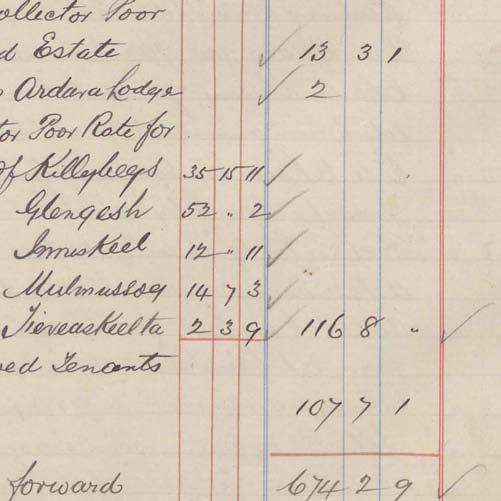 ollector Poor
d Estate ✓ 13 3 1
o Ardara Lodge ✓ 2
tor Poor Rate for
of Killybegs 35 15 11 ✓
Glengesh 52 " 2 ✓
Inniskeel 12 " 11 ✓
Mulmussog 14 7 3 ✓
Tieveaskeelta 2 3 9 ✓ 116 8 " ✓
ved Tenants
107 7 1
forward 674 2 9 ✓